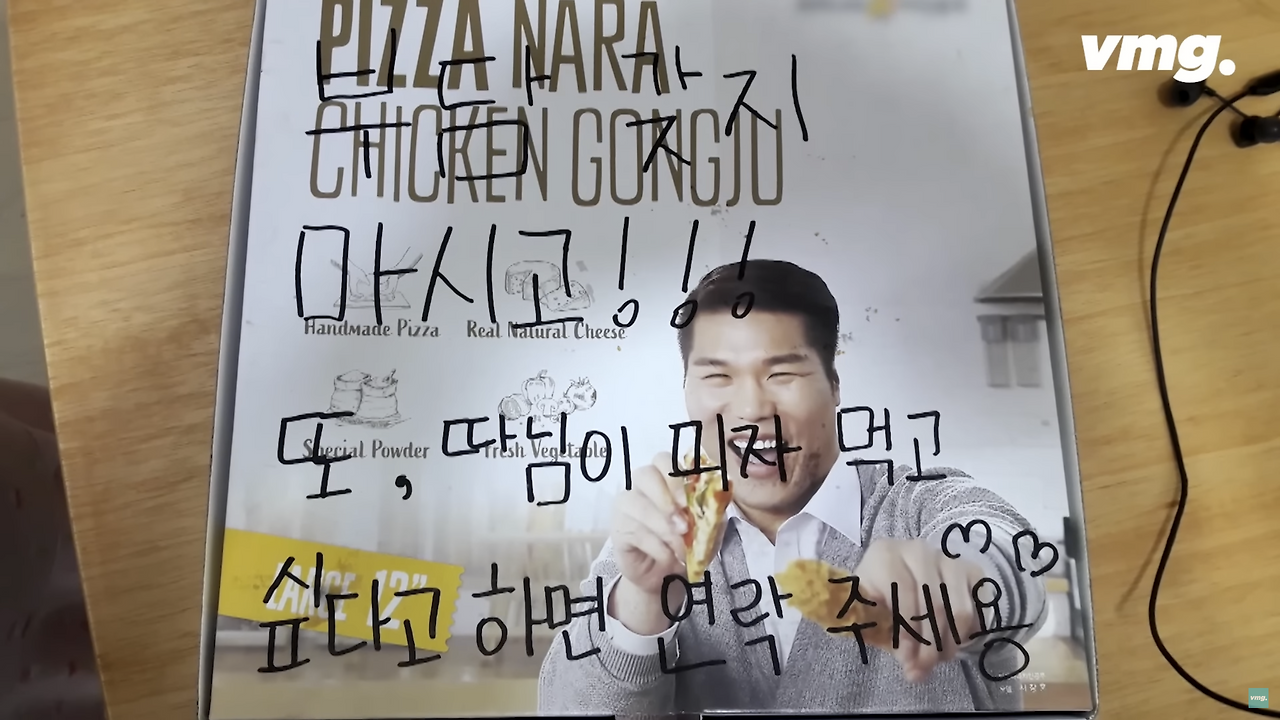 PIZZA NARA
CHICKEN GONGJU
vmg.
부담 갖지
마시고!!!
Handmade Pizza Real Natural Cheese
Special Powder Fresh Vegetable
또, 따님이 피자 먹고
LARGE 12"
싶다고 하면 연락 주세용
vmg.